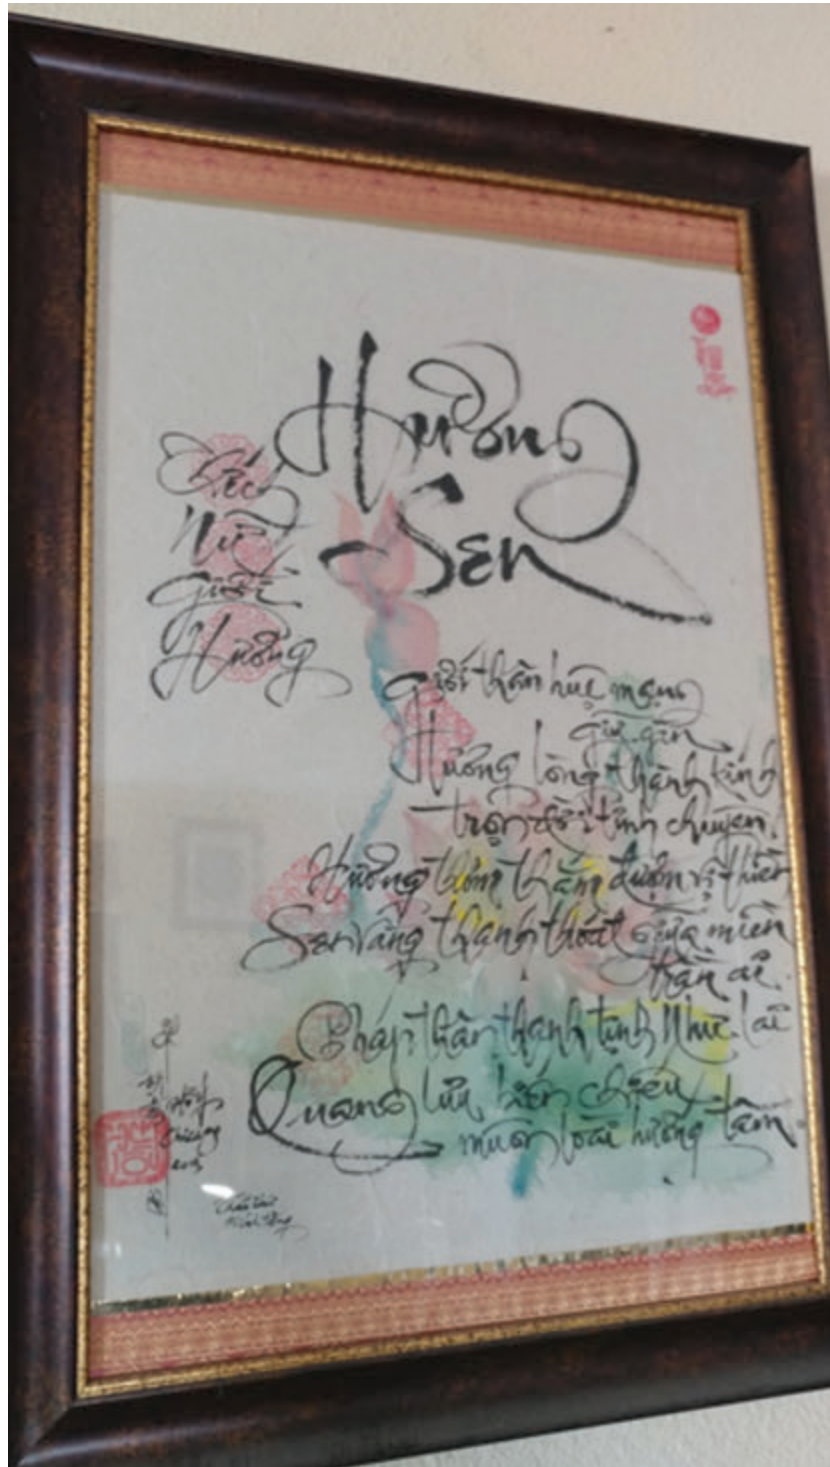 Hương
Sen
Thích
Nữ
Giới
Hương
Giới thân huệ mạng
giữ gìn
Hương lòng thành kính
trọn đời tinh chuyên.
Hương thơm thắm đượm vị thiền
Sen vàng thanh thoát giữa miền
trần ai.
Pháp thân thanh tịnh Như Lai
Quang lưu biến chiếu
muôn loài hướng tâm.